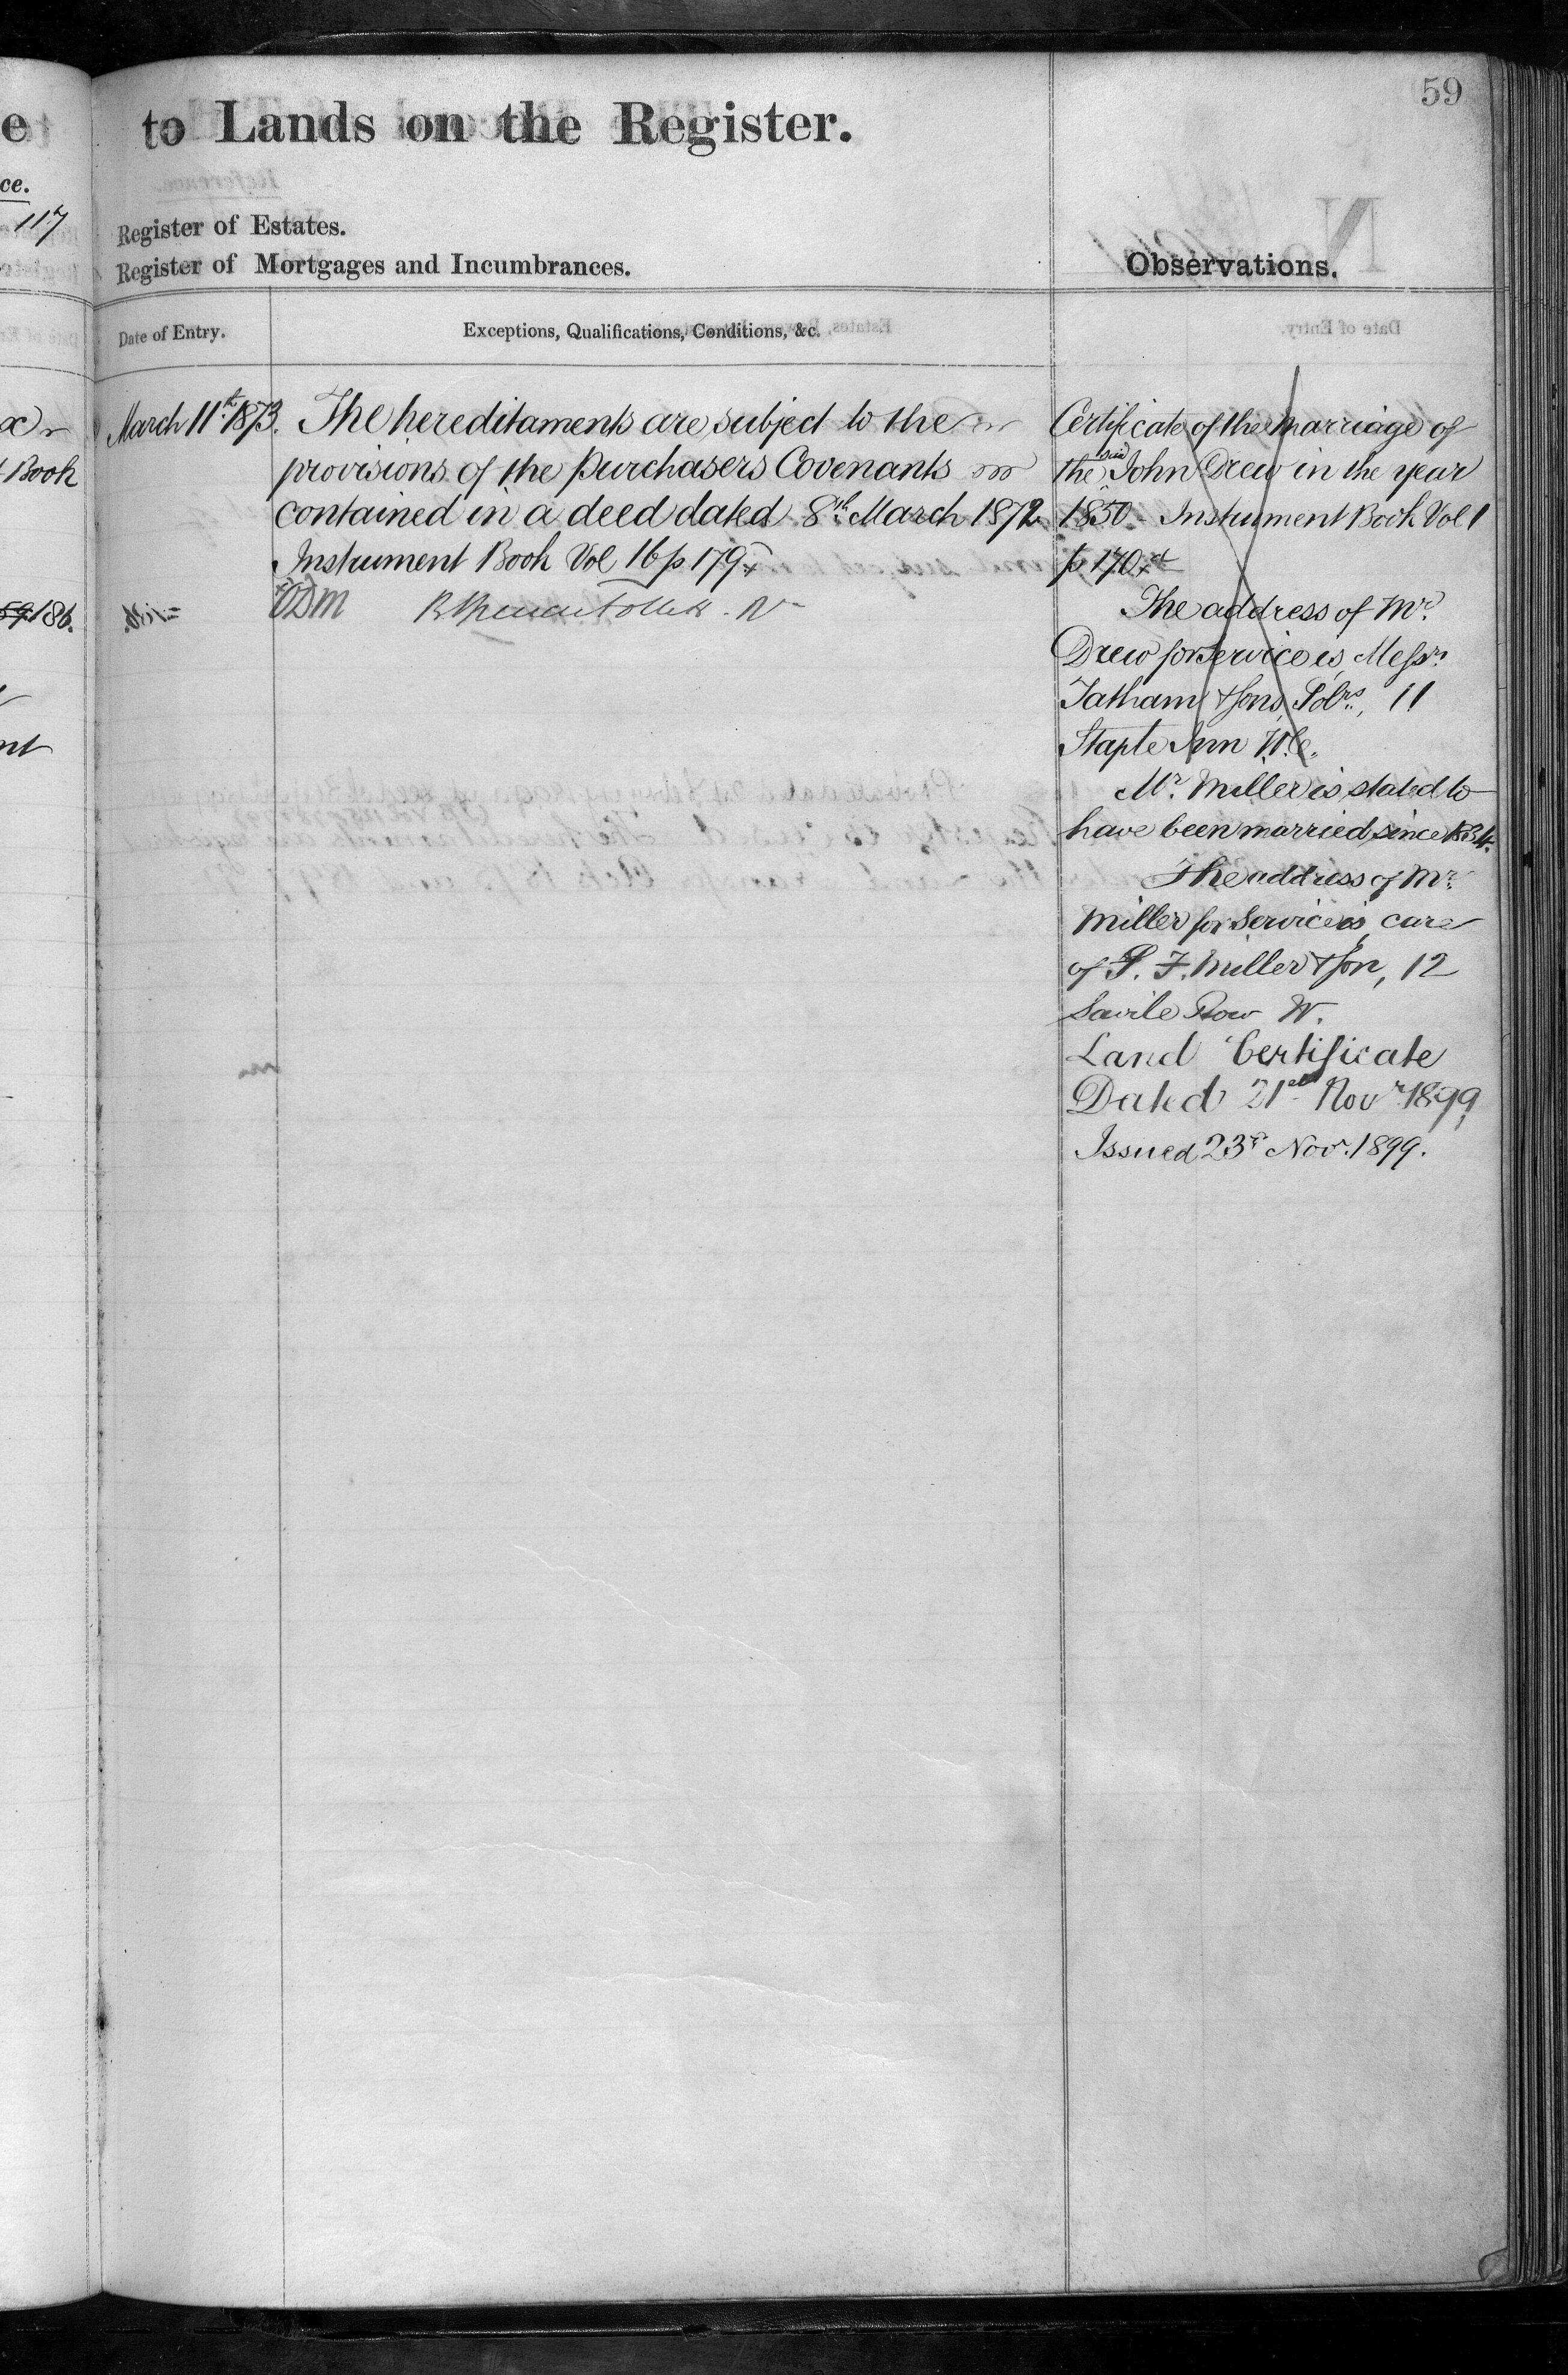 59
to Lands on the Register.
Register of Estates.
Register of Mortgages and Incumbrances.
Observations.
Date of Entry.
Exceptions, Qualifications, Conditions, &c.
March 11th 1873.
The hereditaments are subject to the
provisions of the Purchasers Covenants
contained in a deed dated 8th March 1872
Instrument Book Vol 16 p 179
Certificate of the marriage of
the said John Drew in the year
1850 - Instrument Book Vol 1
p 170
The address of Mr.
Drew for service is Messrs.
Tatham & Sons, Solrs., 11
Staple Inn W.C.
Mr. Miller is stated to
have been married since 1834.
The address of Mr.
Miller for Service is care
of S. F. Miller & Son, 12
Savile Row W.
Land Certificate
Dated 21st Novr. 1899
Issued 23rd Novr. 1899.
e
ce.
117
Book
186.